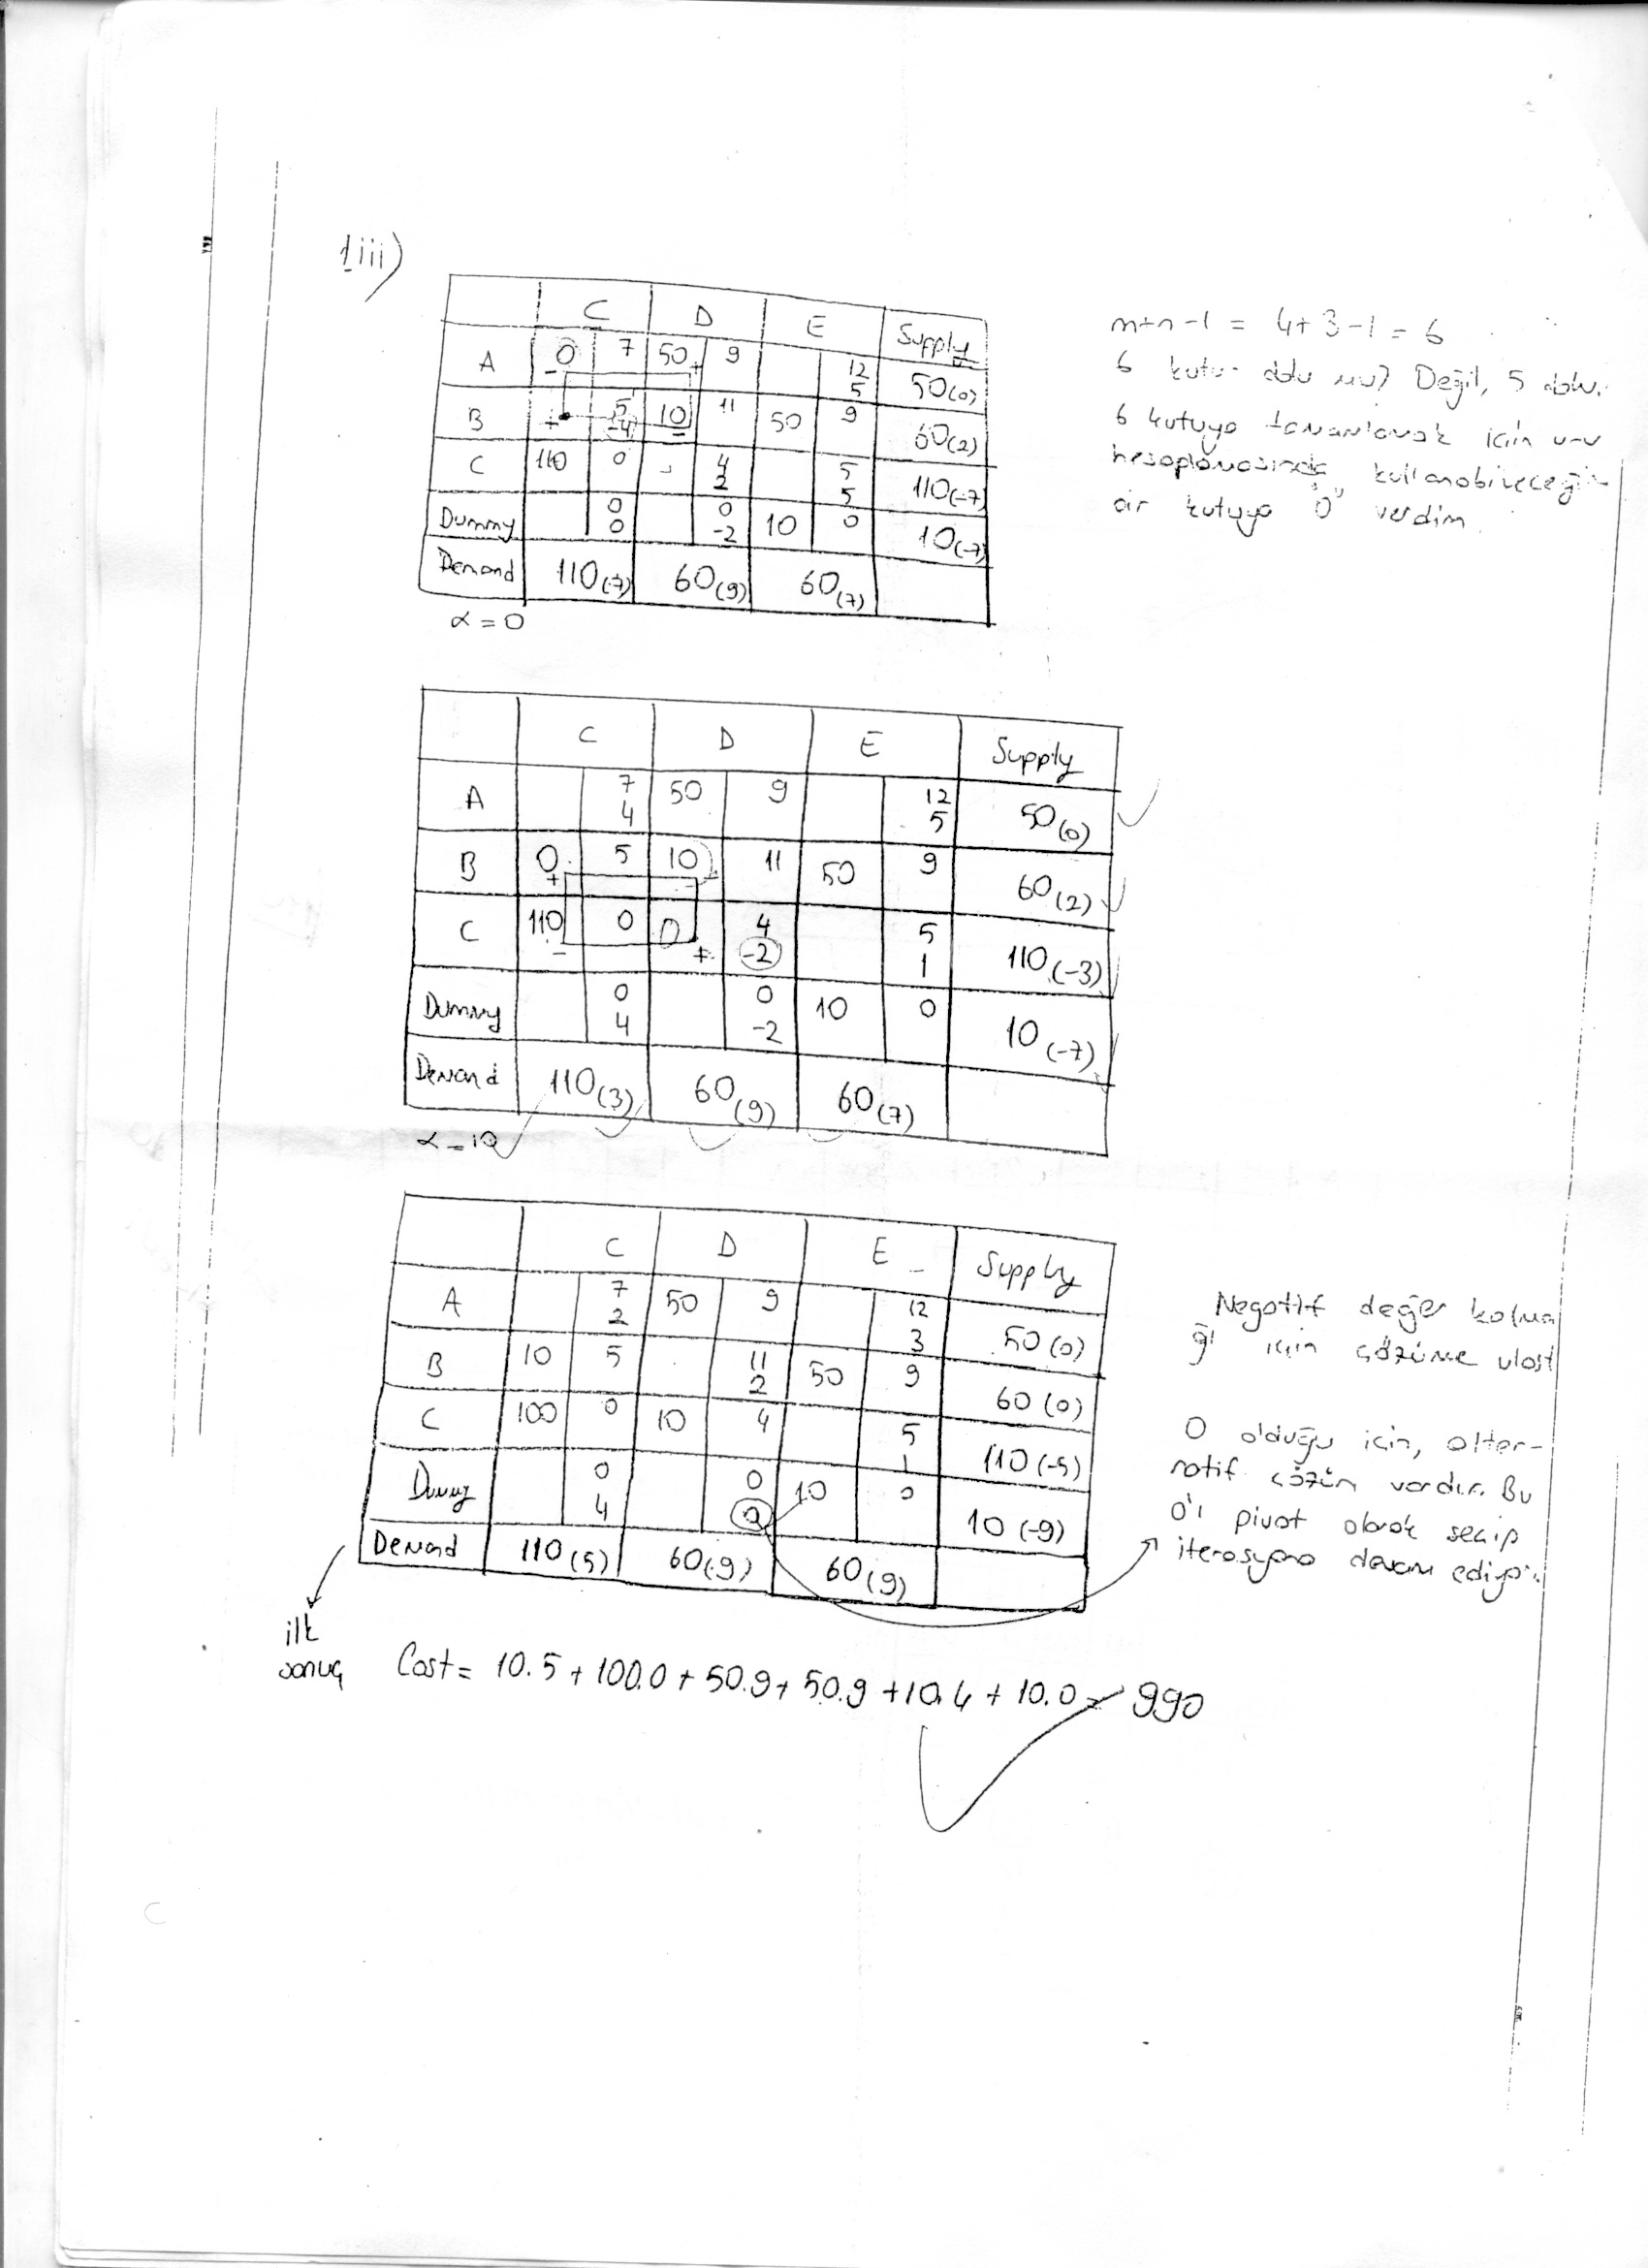 1iii)
C D E Supply
A 0 7 50 9 12 50(0)
- + 5
B 5 10 11 50 9 60(2)
+ -4 -
C 110 0 4 5 110(-7)
2 5
Dummy 0 0 10 0 10(-7)
0 -2
Demand 110(7) 60(9) 60(7)
α = 0
m+n-1 = 4+3-1 = 6
6 kutu dolu mu? Değil, 5 dolu.
6 kutuya tamamlamak için u-v
hesaplamasında kullanabileceğim
bir kutuya "0" verdim
C D E Supply
A 7 50 9 12 50(0)
4 5
B 0 5 10 11 50 9 60(2)
+ -
C 110 0 0 4 5 110(-3)
- + -2 1
Dummy 0 0 10 0 10(-7)
4 -2
Demand 110(3) 60(9) 60(7)
α = 10
C D E Supply
A 7 50 9 12 50(0)
2 3
B 10 5 11 50 9 60(0)
2
C 100 0 10 4 5 110(-5)
1
Dummy 0 0 10 0 10(-9)
4 0
Demand 110(5) 60(9) 60(9)
Negatif değer kalma
ğı için çözüme ulaşt
0 olduğu için, alter-
natif çözüm vardır. Bu
0'ı pivot olarak seçip
iterasyona devam ediyor
ilk
sonuç
Cost = 10.5 + 100.0 + 50.9 + 50.9 + 10.4 + 10.0 = 990